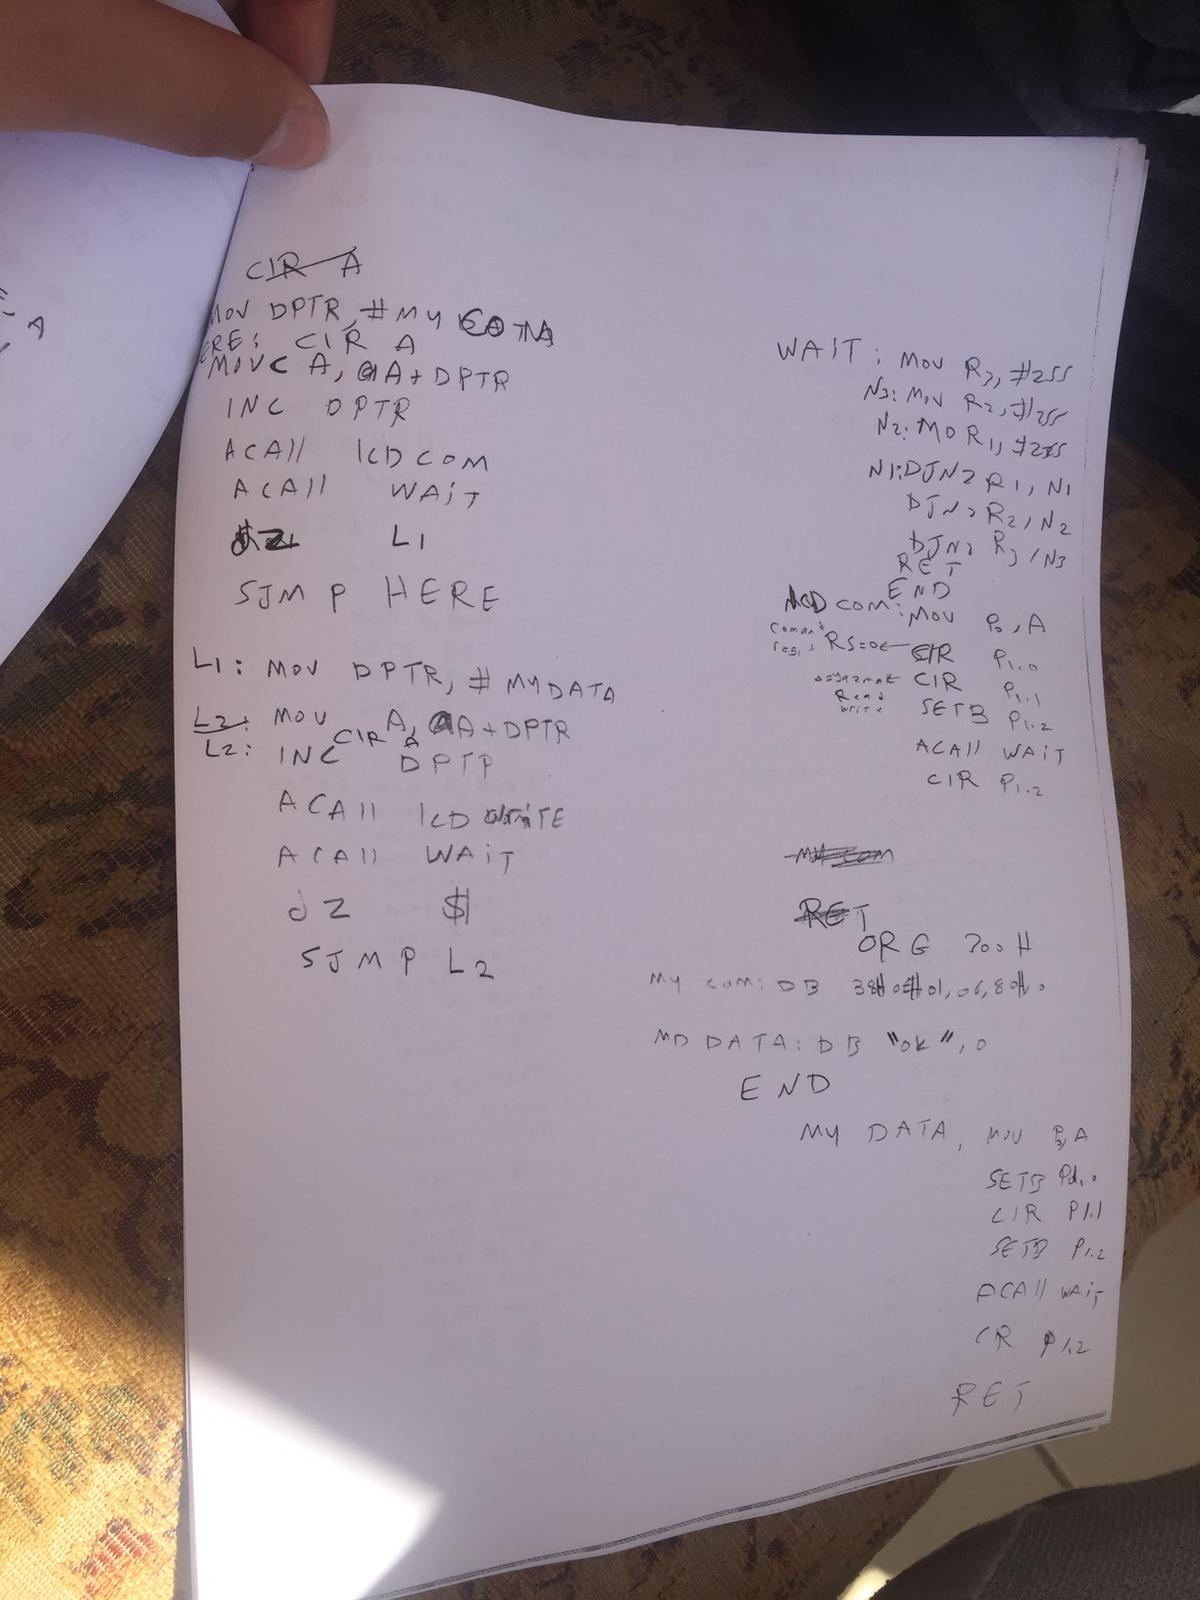 CIR A
MOV DPTR, #MY
ERE: CIR A
MOVC A, @A+DPTR
INC DPTR
ACAll lCD COM
ACAll WAiT
JZ L1
SJMP HERE
L1: MOV DPTR, # MYDATA
L2: MOV A, @A+DPTR
L2: CIR A
INC DPTP
ACAll lCD WRiTE
ACAll WAiT
JZ $
SJMP L2
WAiT: MOV R3, #255
N3: MOV R2, #255
N2: MO R1, #255
N1: DJNZ R1, N1
DJNZ R2, N2
DJNZ R3, N3
RET
END
lCD com: MOV P0, A
RS=0 ← CIR P1.0
CIR P1.1
Read
write
SETB P1.2
ACAll WAiT
CIR P1.2
RET
ORG 300H
MY com: DB 01, 06, 80H
MD DATA: DB "ok", 0
END
MY DATA, MOV P0, A
SETB P1.0
CIR P1.1
SETB P1.2
ACAll WAiT
CR P1.2
RET